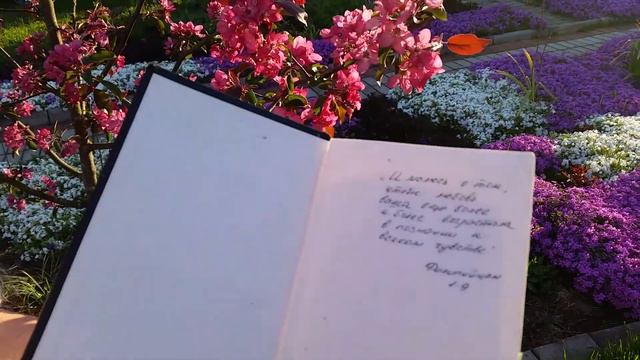 „И молюсь о том,
чтобы любовь
ваша еще более
и более возрастала
в познании и
всяком чувстве"
Филиппийцам
1:9